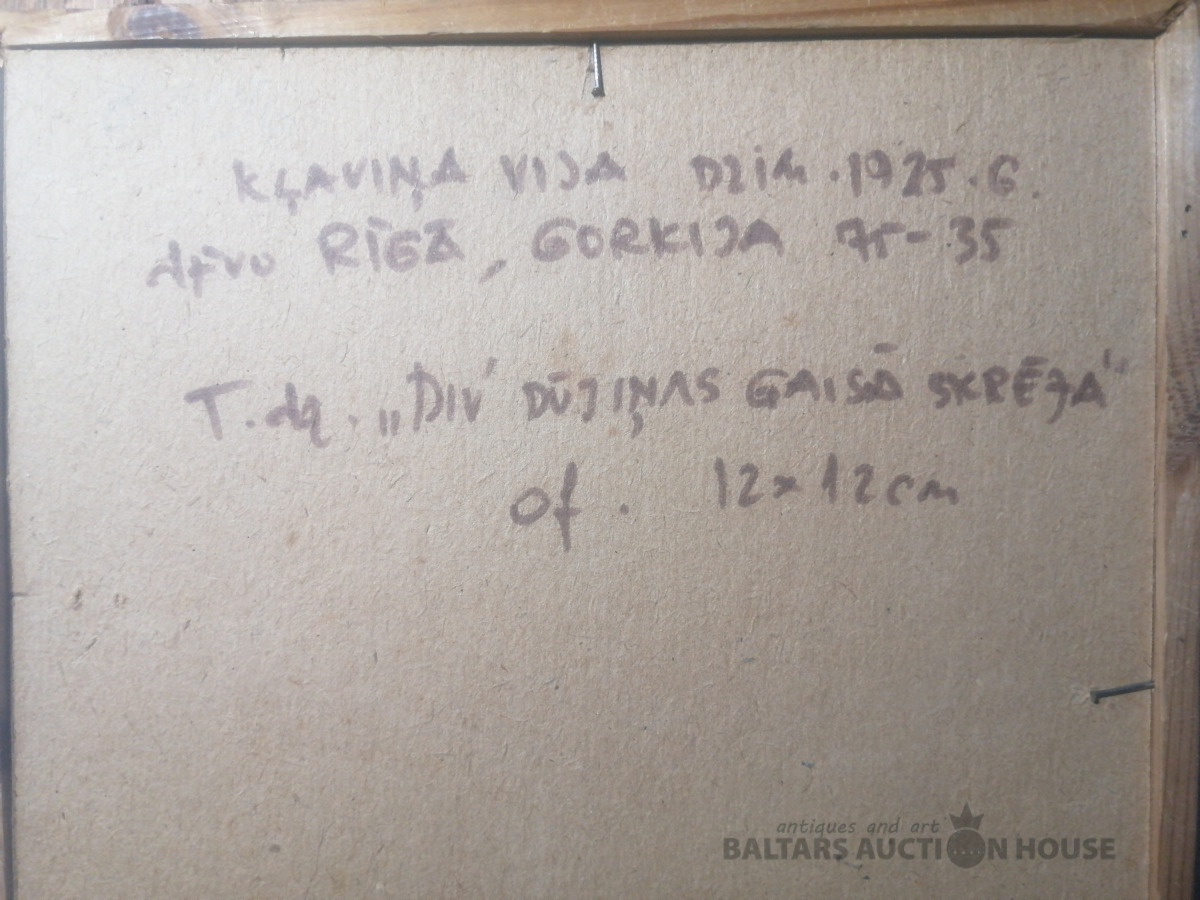 KĻAVIŅA VIJA DZIM. 1925. G.
dzīvo RĪGĀ, GORKIJA 75-35
T. dq. „DIV' DŪJIŅAS GAISĀ SKRĒJA"
of. 12x12cm
antiques and art
BALTARS AUCTION HOUSE